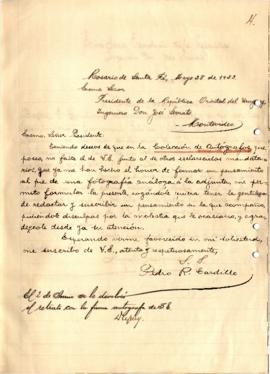 Rosario de Santa Fé, Mayo 28 de 1923.
Excmo. Señor
Presidente de la República Oriental del Uruguay
Ingeniero Don José Serrato
Montevideo
Excmo. Señor Presidente:
Teniendo deseos de que en la Colección de Autógrafos que
poseo, no falte el de V.E. junto al de otros esclarecidos mandata-
rios, que ya me han hecho el honor de formar un pensamiento
al pie de una fotografía análoga á la adjunta, me per-
mito formular la presente, rogándole quiera tener la gentileza
de redactar y suscribir un pensamiento en la que acompaño,
pidiéndole disculpas por la molestia que le ocasiono, y agra-
deciéndole desde ya su atención.
Esperando verme favorecido en mi solicitud,
me suscribo de V.E., atenta y respetuosamente,
S. S.
Pedro R. Cardillo
El 2 de Junio se le devolvió
el retrato con la firma autógrafa de S.E.